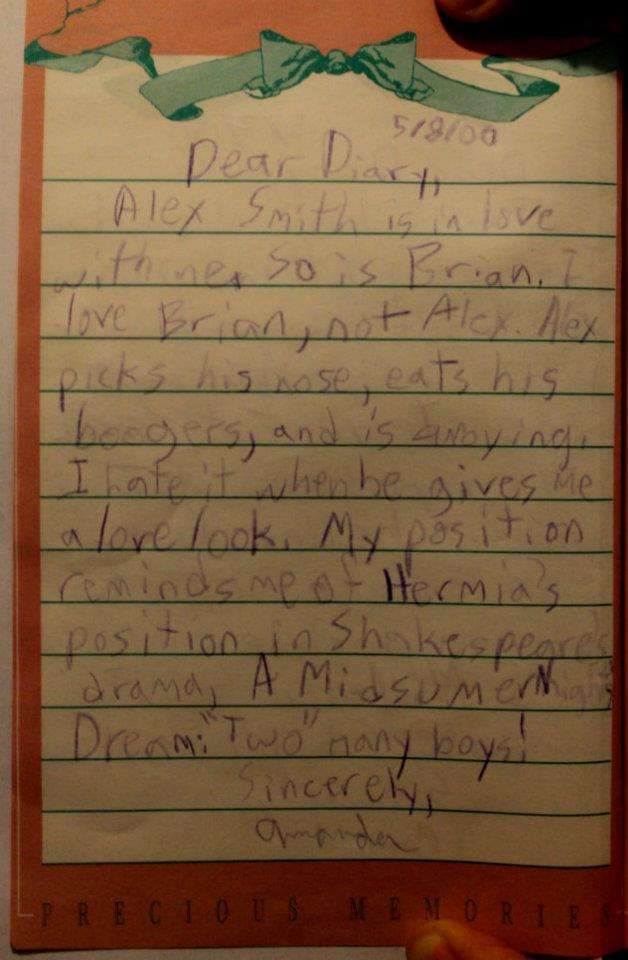 5/8/00
Dear Diary,
Alex Smith is in love
with me. So is Brian. I
love Brian, not Alex. Alex
picks his nose, eats his
boogers, and is anoying.
I hate it when he gives me
a love look. My position
reminds me of Hermia's
position in Shakespeare's
drama, A Midsumer Night's
Dream: "Two" many boys!
Sincerely,
Amanda
PRECIOUS MEMORIES